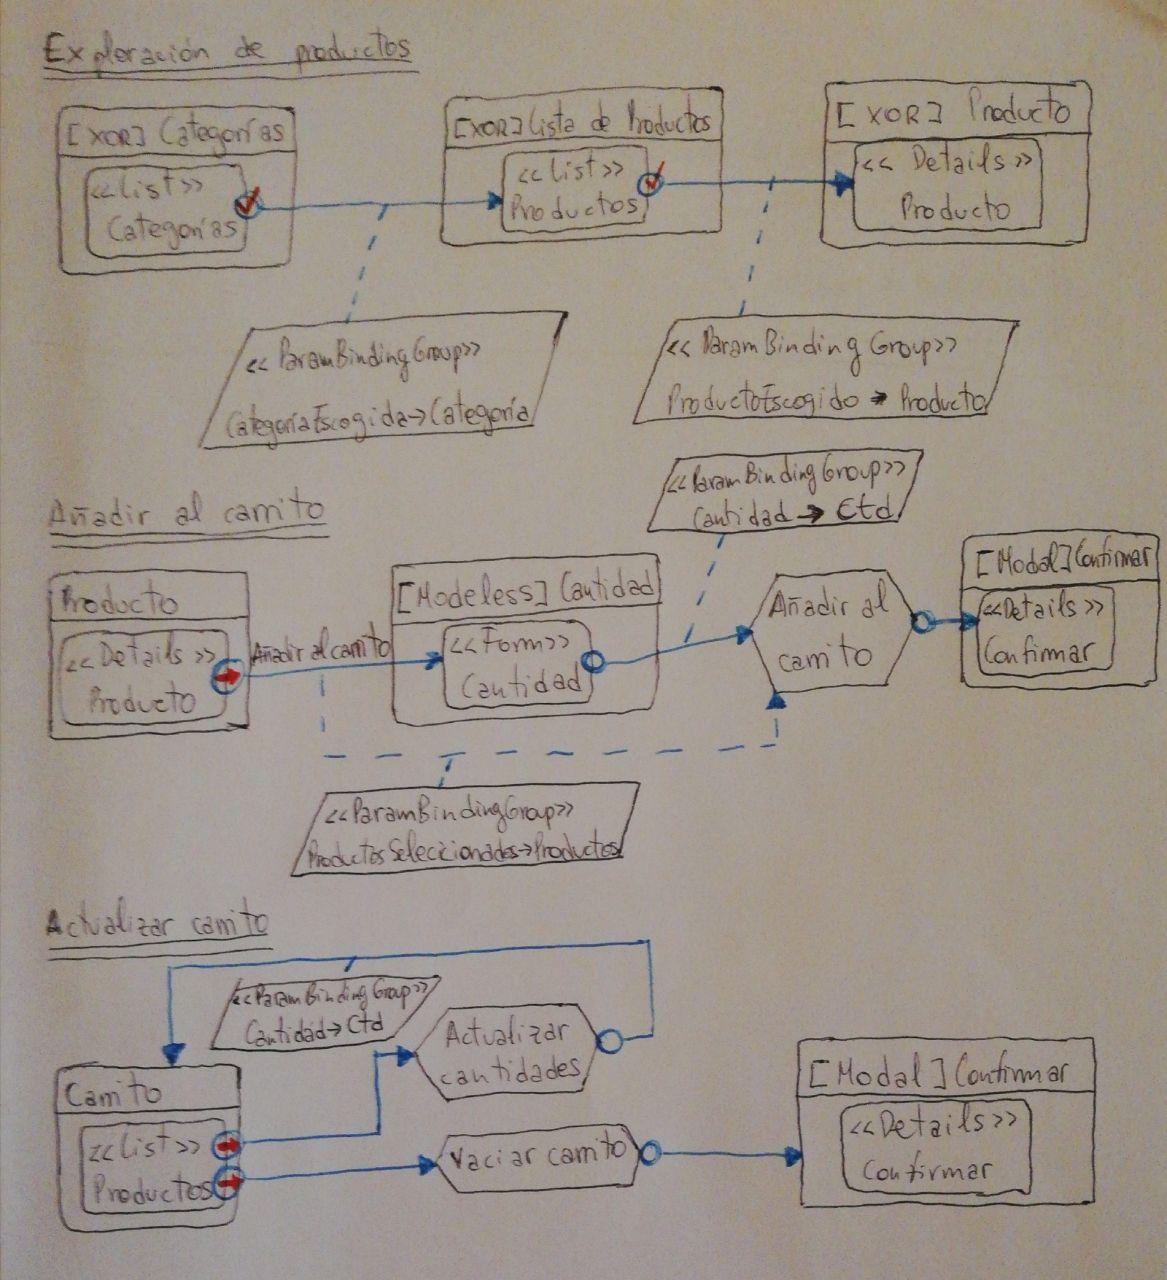 Exploración de productos
[XOR] Categorías
<<List>>
Categorías
[XOR] Lista de Productos
<<List>>
Productos
[XOR] Producto
<<Details>>
Producto
<<ParamBindingGroup>>
CategoríaEscogida→Categoría
<<ParamBindingGroup>>
ProductoEscogido → Producto
Añadir al carrito
<<ParamBindingGroup>>
Cantidad → Ctd
Producto
<<Details>>
Producto
Añadir al carrito
[Modeless] Cantidad
<<Form>>
Cantidad
Añadir al
carrito
[Modal] Confirmar
<<Details>>
Confirmar
<<ParamBindingGroup>>
ProductosSeleccionados→Productos
Actualizar carrito
<<ParamBindingGroup>>
Cantidad→Ctd
Actualizar
cantidades
Carrito
<<List>>
Productos
Vaciar carrito
[Modal] Confirmar
<<Details>>
Confirmar